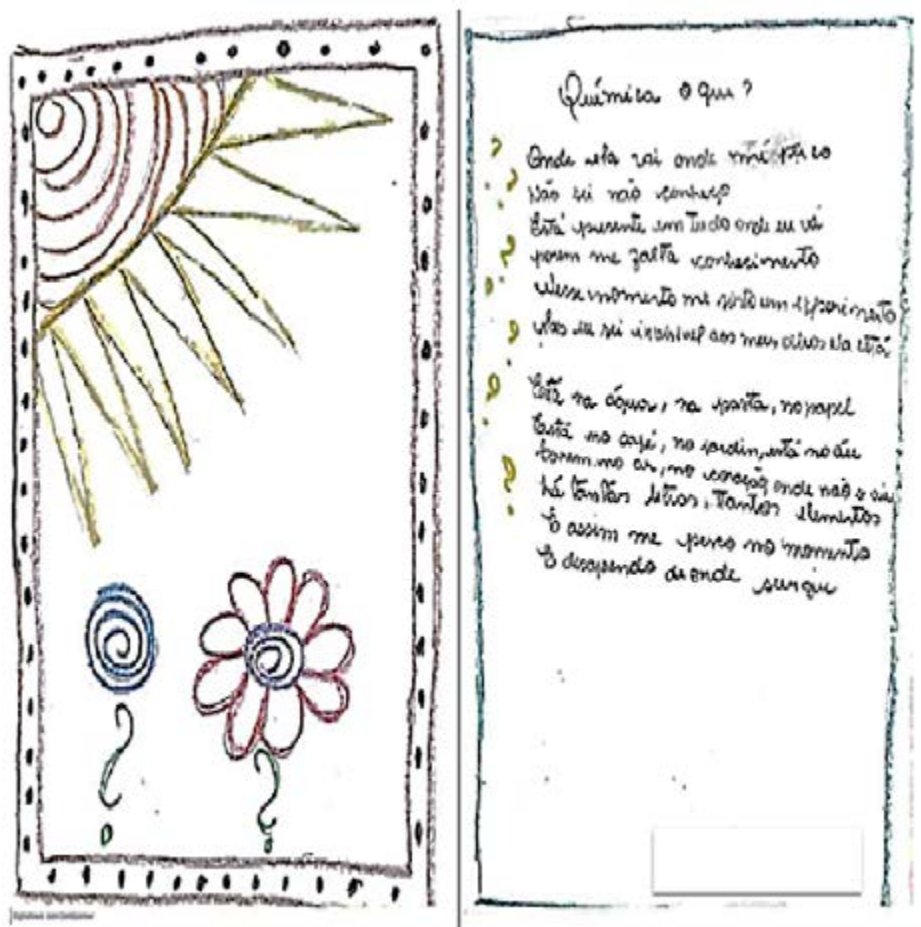 Química o que?
Onde ela vai onde
Não sei não conheço
Está presente em tudo onde eu vá
porem me falta conhecimento
Nesse momento me sinto um experimento
Mas eu sei invisível aos meus olhos ela está
Está na água, na porta, no papel
Está no café, no jardin, está no céu
no ar, no coração onde não
há tantas letras, tantos elementos
E assim me perco no momento
E de onde surgiu